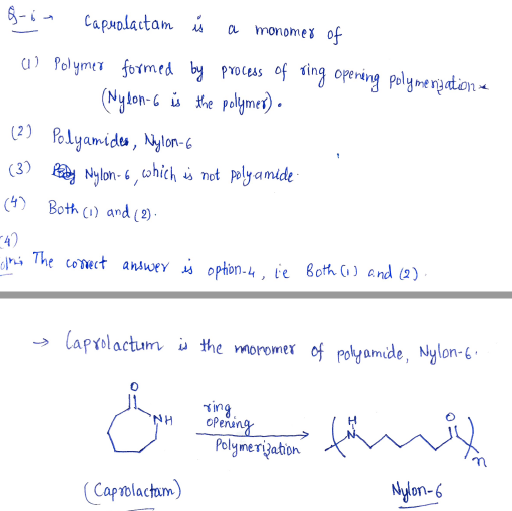 Q-6 → Caprolactam is a monomer of
(1) Polymer formed by process of ring opening polymerization
(Nylon-6 is the polymer).
(2) Polyamides, Nylon-6
(3) Nylon-6, which is not polyamide.
(4) Both (1) and (2).
(4)
The correct answer is option-4, i.e Both (1) and (2).
→ Caprolactum is the monomer of polyamide, Nylon-6.
O
NH
ring
opening
Polymerization
H
N
O
n
(Caprolactam)
Nylon-6